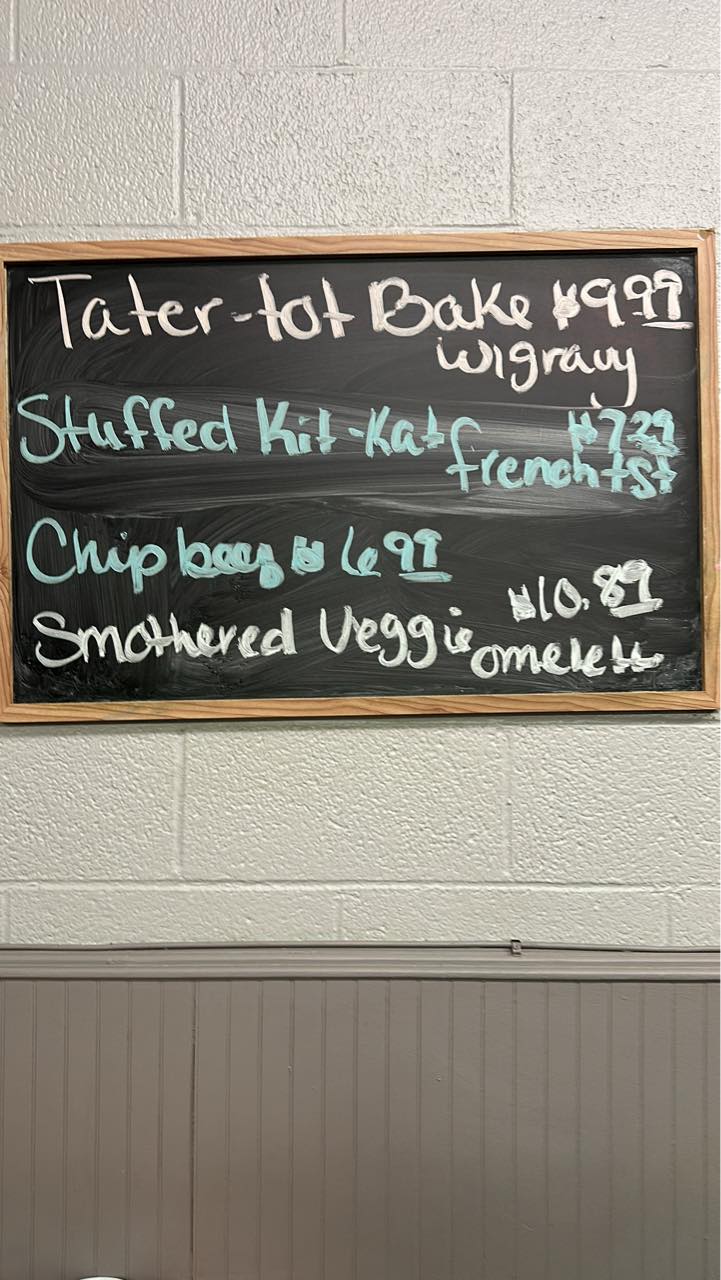 Tater-tot Bake $9.99
w/gravy
Stuffed Kit-Kat $7.29
french tst
Chip beef $6.99
Smothered Veggie $10.89
omelett